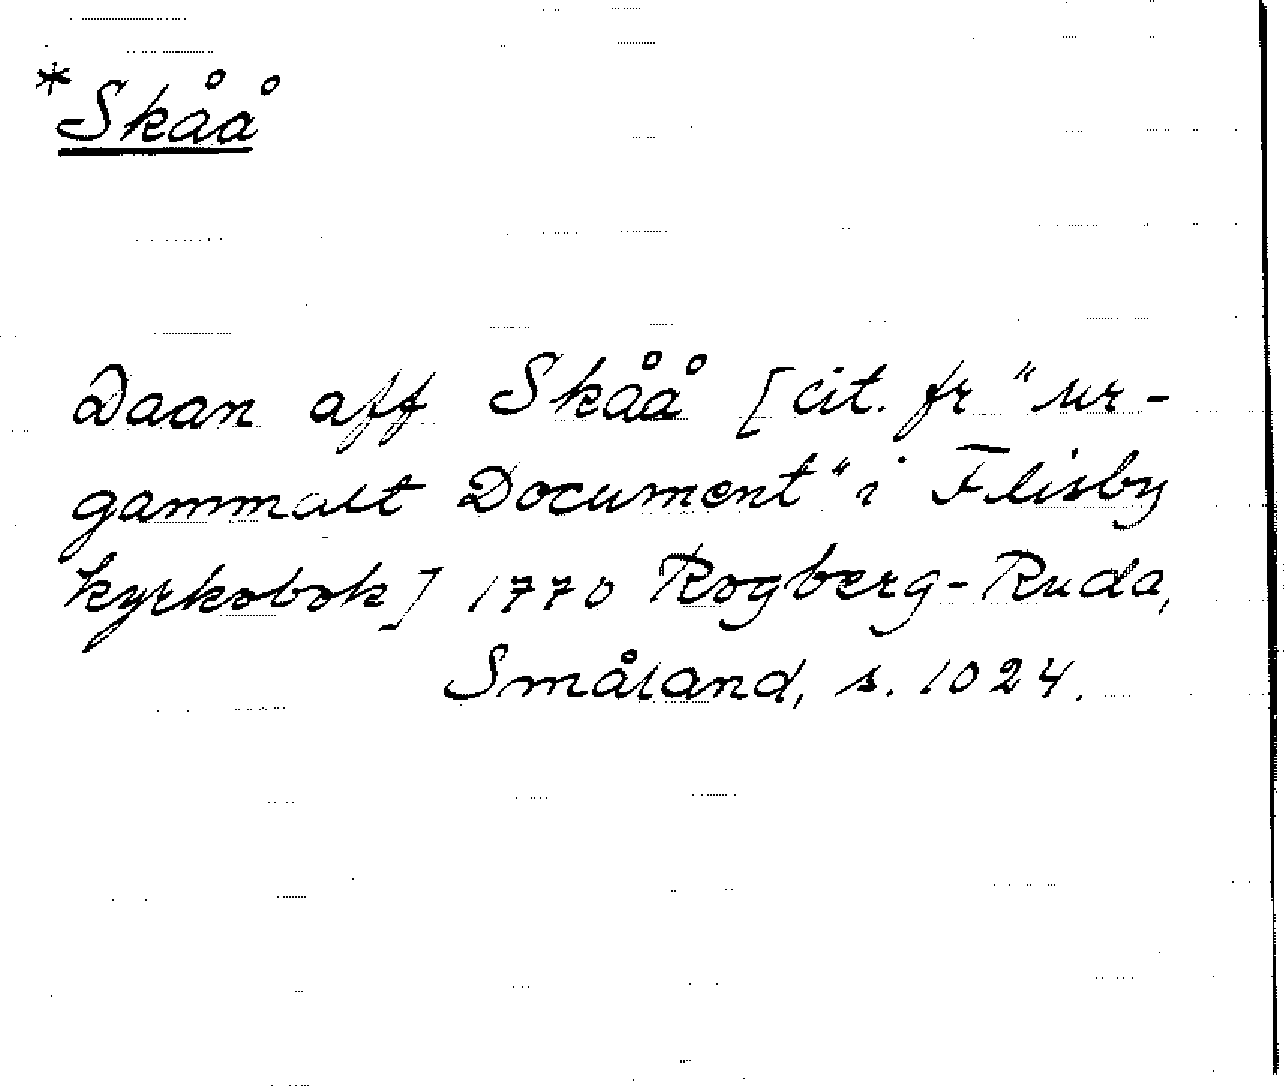 *Skåå
Daan aff Skåå [cit. fr "ur-
gammalt Document" i Flisby
kyrkobok] 1770 Rogberg-Ruda,
Småland, s. 1024.